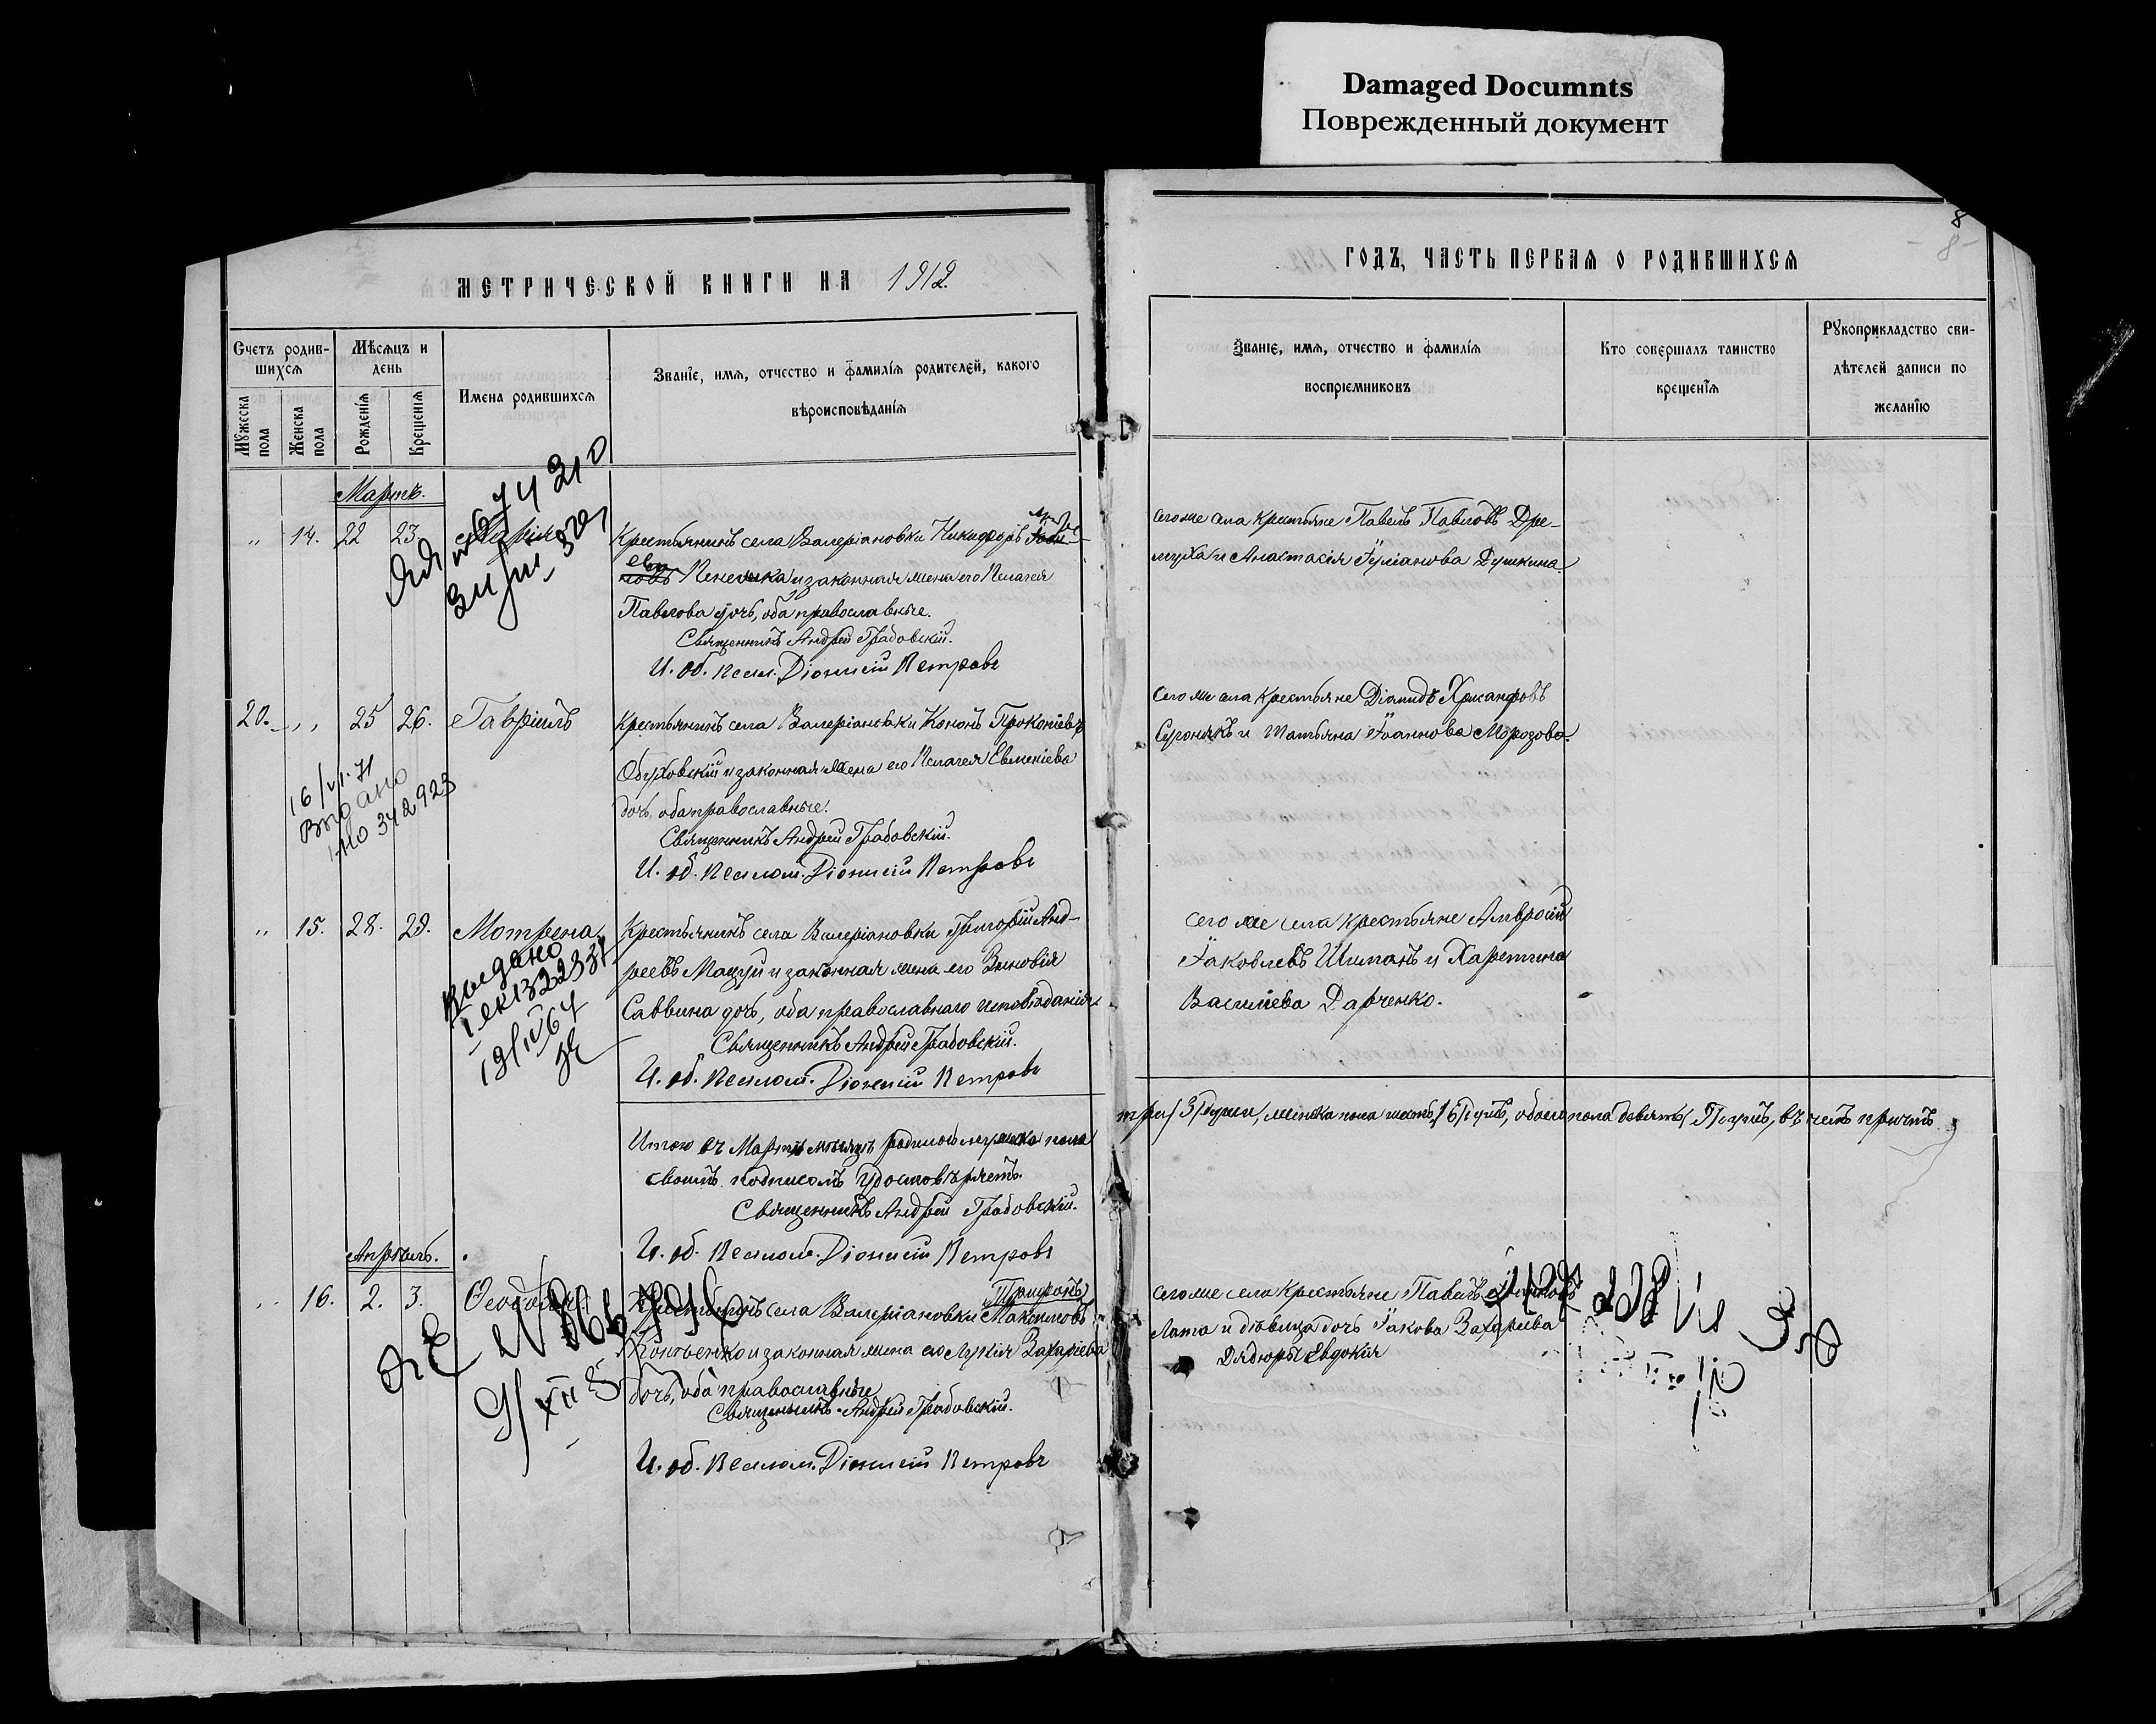 Damaged Documnts
Поврежденный документ
МЕТРИЧЕСКОЙ КНИГИ НА 1912.
Счетъ родив-
шихся
Мѣсяцъ и
день
Имена родившихся
Званіе, имя, отчество и фамилія родителей, какого
вѣроисповѣданія
Мужеска
пола
Женска
пола
Рожденія
Крещенія
Мартъ.
„ 14. 22 23. Марія
Крестьянинъ села Валеріановки Никифоръ
и законная жена его Пелагея
Павлова дочь, оба православные.
Священникъ Андрей Грабовскій.
И. об. псал. Діонисій Петровъ
20. „ 25 26. Гавріилъ
Крестьянинъ села Валеріановки Кононъ Прокопіевъ
Обуховскій и законная жена его Пелагея Евменіева
дочь, оба православные.
Священникъ Андрей Грабовскій.
И. об. псалом. Діонисій Петровъ
16/VI-71
Видано
ІНО 342923
„ 15. 28. 29. Мотрона
Крестьянинъ села Валеріановки Григорій Анд-
реевъ Мацуй и законная жена его Зиновія
Саввина дочь, оба православнаго исповѣданія.
Священникъ Андрей Грабовскій.
И. об. псалом. Діонисій Петровъ
Выдано
19/IV 64
Итого въ Мартѣ мѣсяцѣ родилось мужеска пола
своимъ подписомъ удостовѣряетъ.
Священникъ Андрей Грабовскій.
И. об. псалом. Діонисій Петровъ
Апрѣль.
„ 16. 2. 3. Ѳеодосія
Трифонъ
Крестьянинъ села Валеріановки Максимовъ
и законная жена его Лукія Захаріева
дочь, оба православные
Священникъ Андрей Грабовскій.
И. об. псалом. Діонисій Петровъ
8
8
ГОДЪ, ЧАСТЬ ПЕРВАЯ О РОДИВШИХСЯ
Званіе, имя, отчество и фамилія
воспріемниковъ
Кто совершалъ таинство
крещенія
Рукоприкладство сви-
дѣтелей записи по
желанію
сего же села крестьяне Павелъ Павловъ Дре-
муха и Анастасія Іуліанова Душкина.
Сего же села крестьяне Діомидъ Хрисанфовъ
и Татьяна Іоаннова Морозова.
Сего же села крестьяне Амвросій
Іаковлевъ Шиманъ и Харетина
Василіева Давченко.
три /3/ души, женска пола шесть /6/ душъ, обоего пола девять /9/ душъ, въ чемъ причтъ
сего же села крестьяне Павелъ
и дѣвица дочь Іакова Захаріева
Дядюры Евдокія